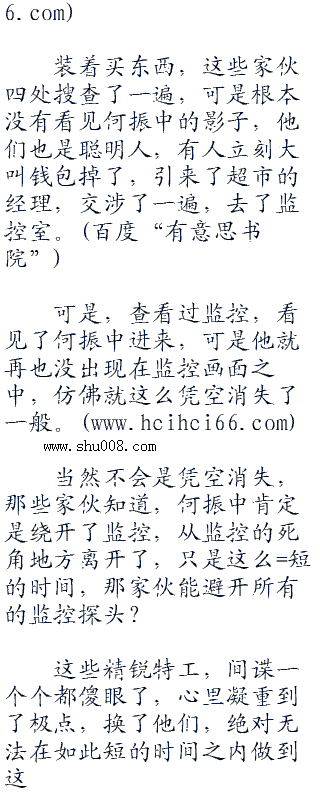 6.com)
装着买东西，这些家伙
四处搜查了一遍，可是根本
没有看见何振中的影子，他
们也是聪明人，有人立刻大
叫钱包掉了，引来了超市的
经理，交涉了一遍，去了监
控室。(百度“有意思书
院”)
可是，查看过监控，看
见了何振中进来，可是他就
再也没出现在监控画面之
中，仿佛就这么凭空消失了
一般。(www.hcihci66.com)
www.shu008.com
当然不会是凭空消失，
那些家伙知道，何振中肯定
是绕开了监控，从监控的死
角地方离开了，只是这么=短
的时间，那家伙能避开所有
的监控探头？
这些精锐特工，间谍一
个个都傻眼了，心里凝重到
了极点，换了他们，绝对无
法在如此短的时间之内做到
这